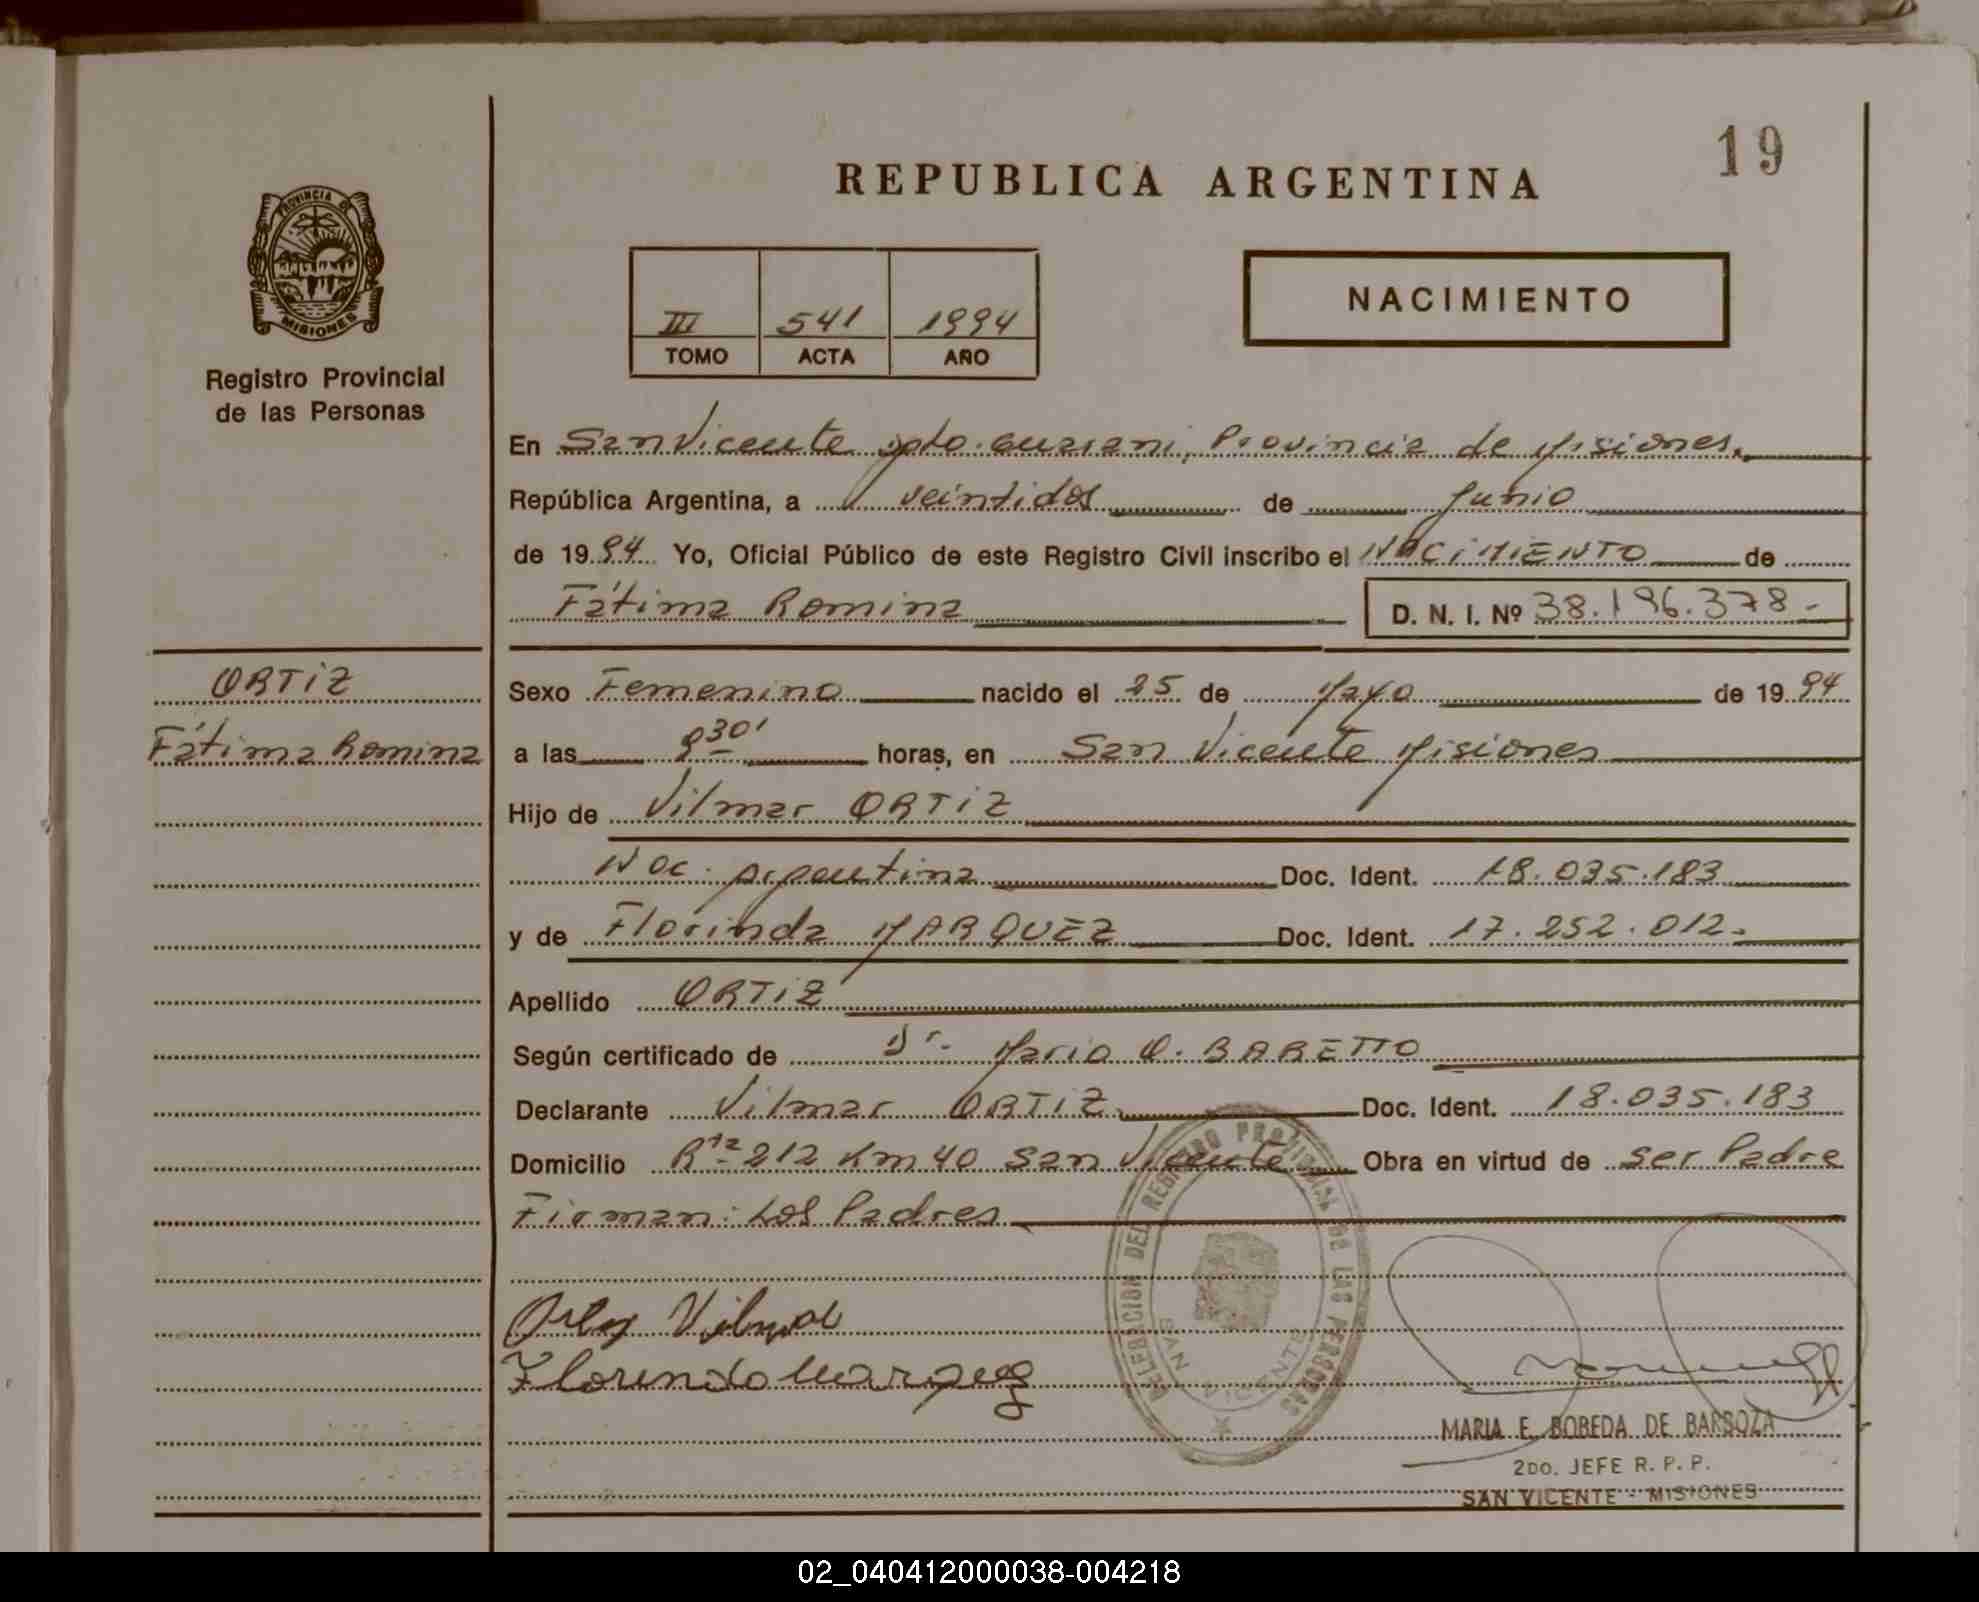 19
REPUBLICA ARGENTINA
PROVINCIA DE
MISIONES
Registro Provincial
de las Personas
III 541 1994
TOMO ACTA AÑO
NACIMIENTO
En San Vicente Dpto. Guarani, Provincia de Misiones.
República Argentina, a veintidos de Junio
de 1994 Yo, Oficial Público de este Registro Civil inscribo el NACIMIENTO de
Fátima Romina D. N. I. Nº 38.196.378.-
ORTIZ
Fátima Romina
Sexo Femenino nacido el 25 de Mayo de 1994
a las 8 30' horas, en San Vicente Misiones
Hijo de Vilmar ORTIZ
Nac. Argentina Doc. Ident. 18.035.183
y de Florinda MARQUEZ Doc. Ident. 17.252.012.
Apellido ORTIZ
Según certificado de Dr. Mario O. BARETTO
Declarante Vilmar ORTIZ Doc. Ident. 18.035.183
Domicilio Rta 212 Km 40 San Vicente Obra en virtud de ser Padre
Firman: Los Padres
DELEGACION DEL REGISTRO PROVINCIAL DE LAS PERSONAS
SAN VICENTE
Ortiz Vilmar
Florinda Marquez
MARIA E. BOBEDA DE BARBOZA
2DO. JEFE R. P. P.
SAN VICENTE - MISIONES
02_040412000038-004218